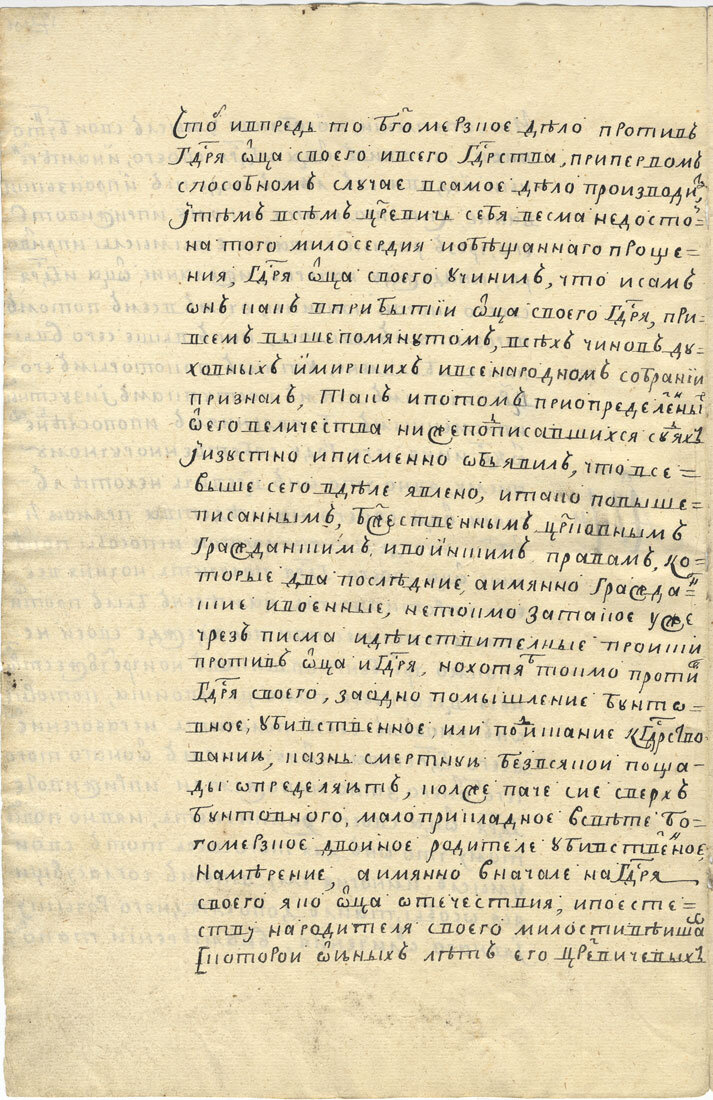 (что ивпредь то бгомерзкое дѣло противъ
Гдря ѿца своего ивсего Гдрства, припервомъ
способномъ случае всамое дѣло производи,
ітѣмъ всѣмъ црвичь себя весма недосто=
на того милосердия иобѣщаннаго проще=
ния, Гдря ѿца своего учинилъ, что исамъ
онъ какъ вприбытіи ѿца своего Гдря, при
всемъ вышепомянутомъ, всѣхъ чиновъ ду=
ховныхъ имирскихъ ивсенародномъ собраніи
призналъ, такъ ипотомъ приопределенны
ѿ его величества нижеподписавшихся судяхъ
ізустно иписменно объявилъ, что все=
выше сего вделе явлено, итако повыше=
писаннымъ, бжественнымъ црковнымъ
гражданскимъ ивоинскимъ правамъ, ко=
торые два последние, аимянно гражда=
ские ивоенные, нетокмо затакое уже
чрезъ писма идѣиствителные происки
противъ ѿца иГдря, нохотябъ токмо проти
Гдря своего, заодно помышление бунто=
вное, убивственное или поискание кГдрство=
ванию, казнь смертную безвсякои поща=
ды определяютъ, колже паче сие сверхъ
бунтовного, малоприкладное всвѣте бо=
гомерзкое двоиное родителе убивственное
намѣрение, аимянно вначале на Гдря
своего яко ѿца отечествия, ипоесте=
ству народителя своего милостивѣиша
[которои ѿюныхъ лѣтъ его црвичевыхъ